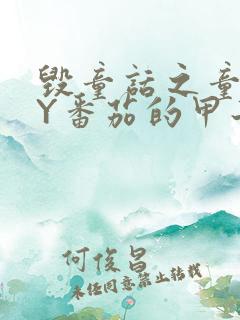 毁童话之童
Y番茄的甲
何俊昌
未经同意禁止转载